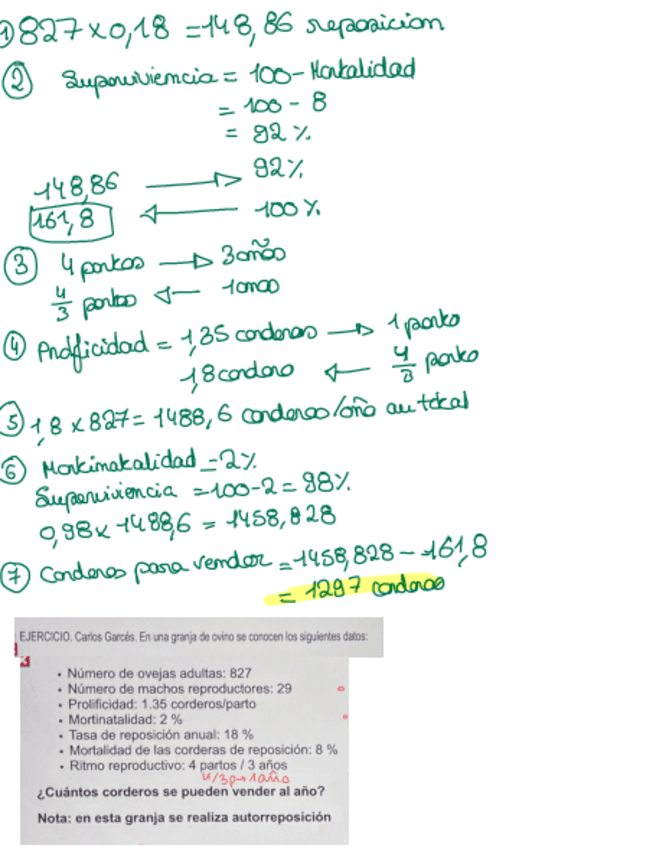 ① 827 x 0,18 = 148,86 reposicion
② Superviviencia = 100 - Mortalidad
= 100 - 8
= 92 %
148,86 → 92%
161,8 ← 100 %
③ 4 partos → 3 años
4/3 partos ← 1 año
④ Prolificidad = 1,35 corderos → 1 parto
1,8 cordero ← 4/3 parto
⑤ 1,8 x 827 = 1488,6 corderos/año en total
⑥ Mortinatalidad = 2%
Superviviencia = 100-2 = 98%
0,98 x 1488,6 = 1458,828
⑦ Corderos para vender = 1458,828 - 161,8
= 1297 corderos
EJERCICIO. Carlos Garcés. En una granja de ovino se conocen los siguientes datos:
• Número de ovejas adultas: 827
• Número de machos reproductores: 29
• Prolificidad: 1.35 corderos/parto
• Mortinatalidad: 2 %
• Tasa de reposición anual: 18 %
• Mortalidad de las corderas de reposición: 8 %
• Ritmo reproductivo: 4 partos / 3 años
4/3p→1año
¿Cuántos corderos se pueden vender al año?
Nota: en esta granja se realiza autorreposición